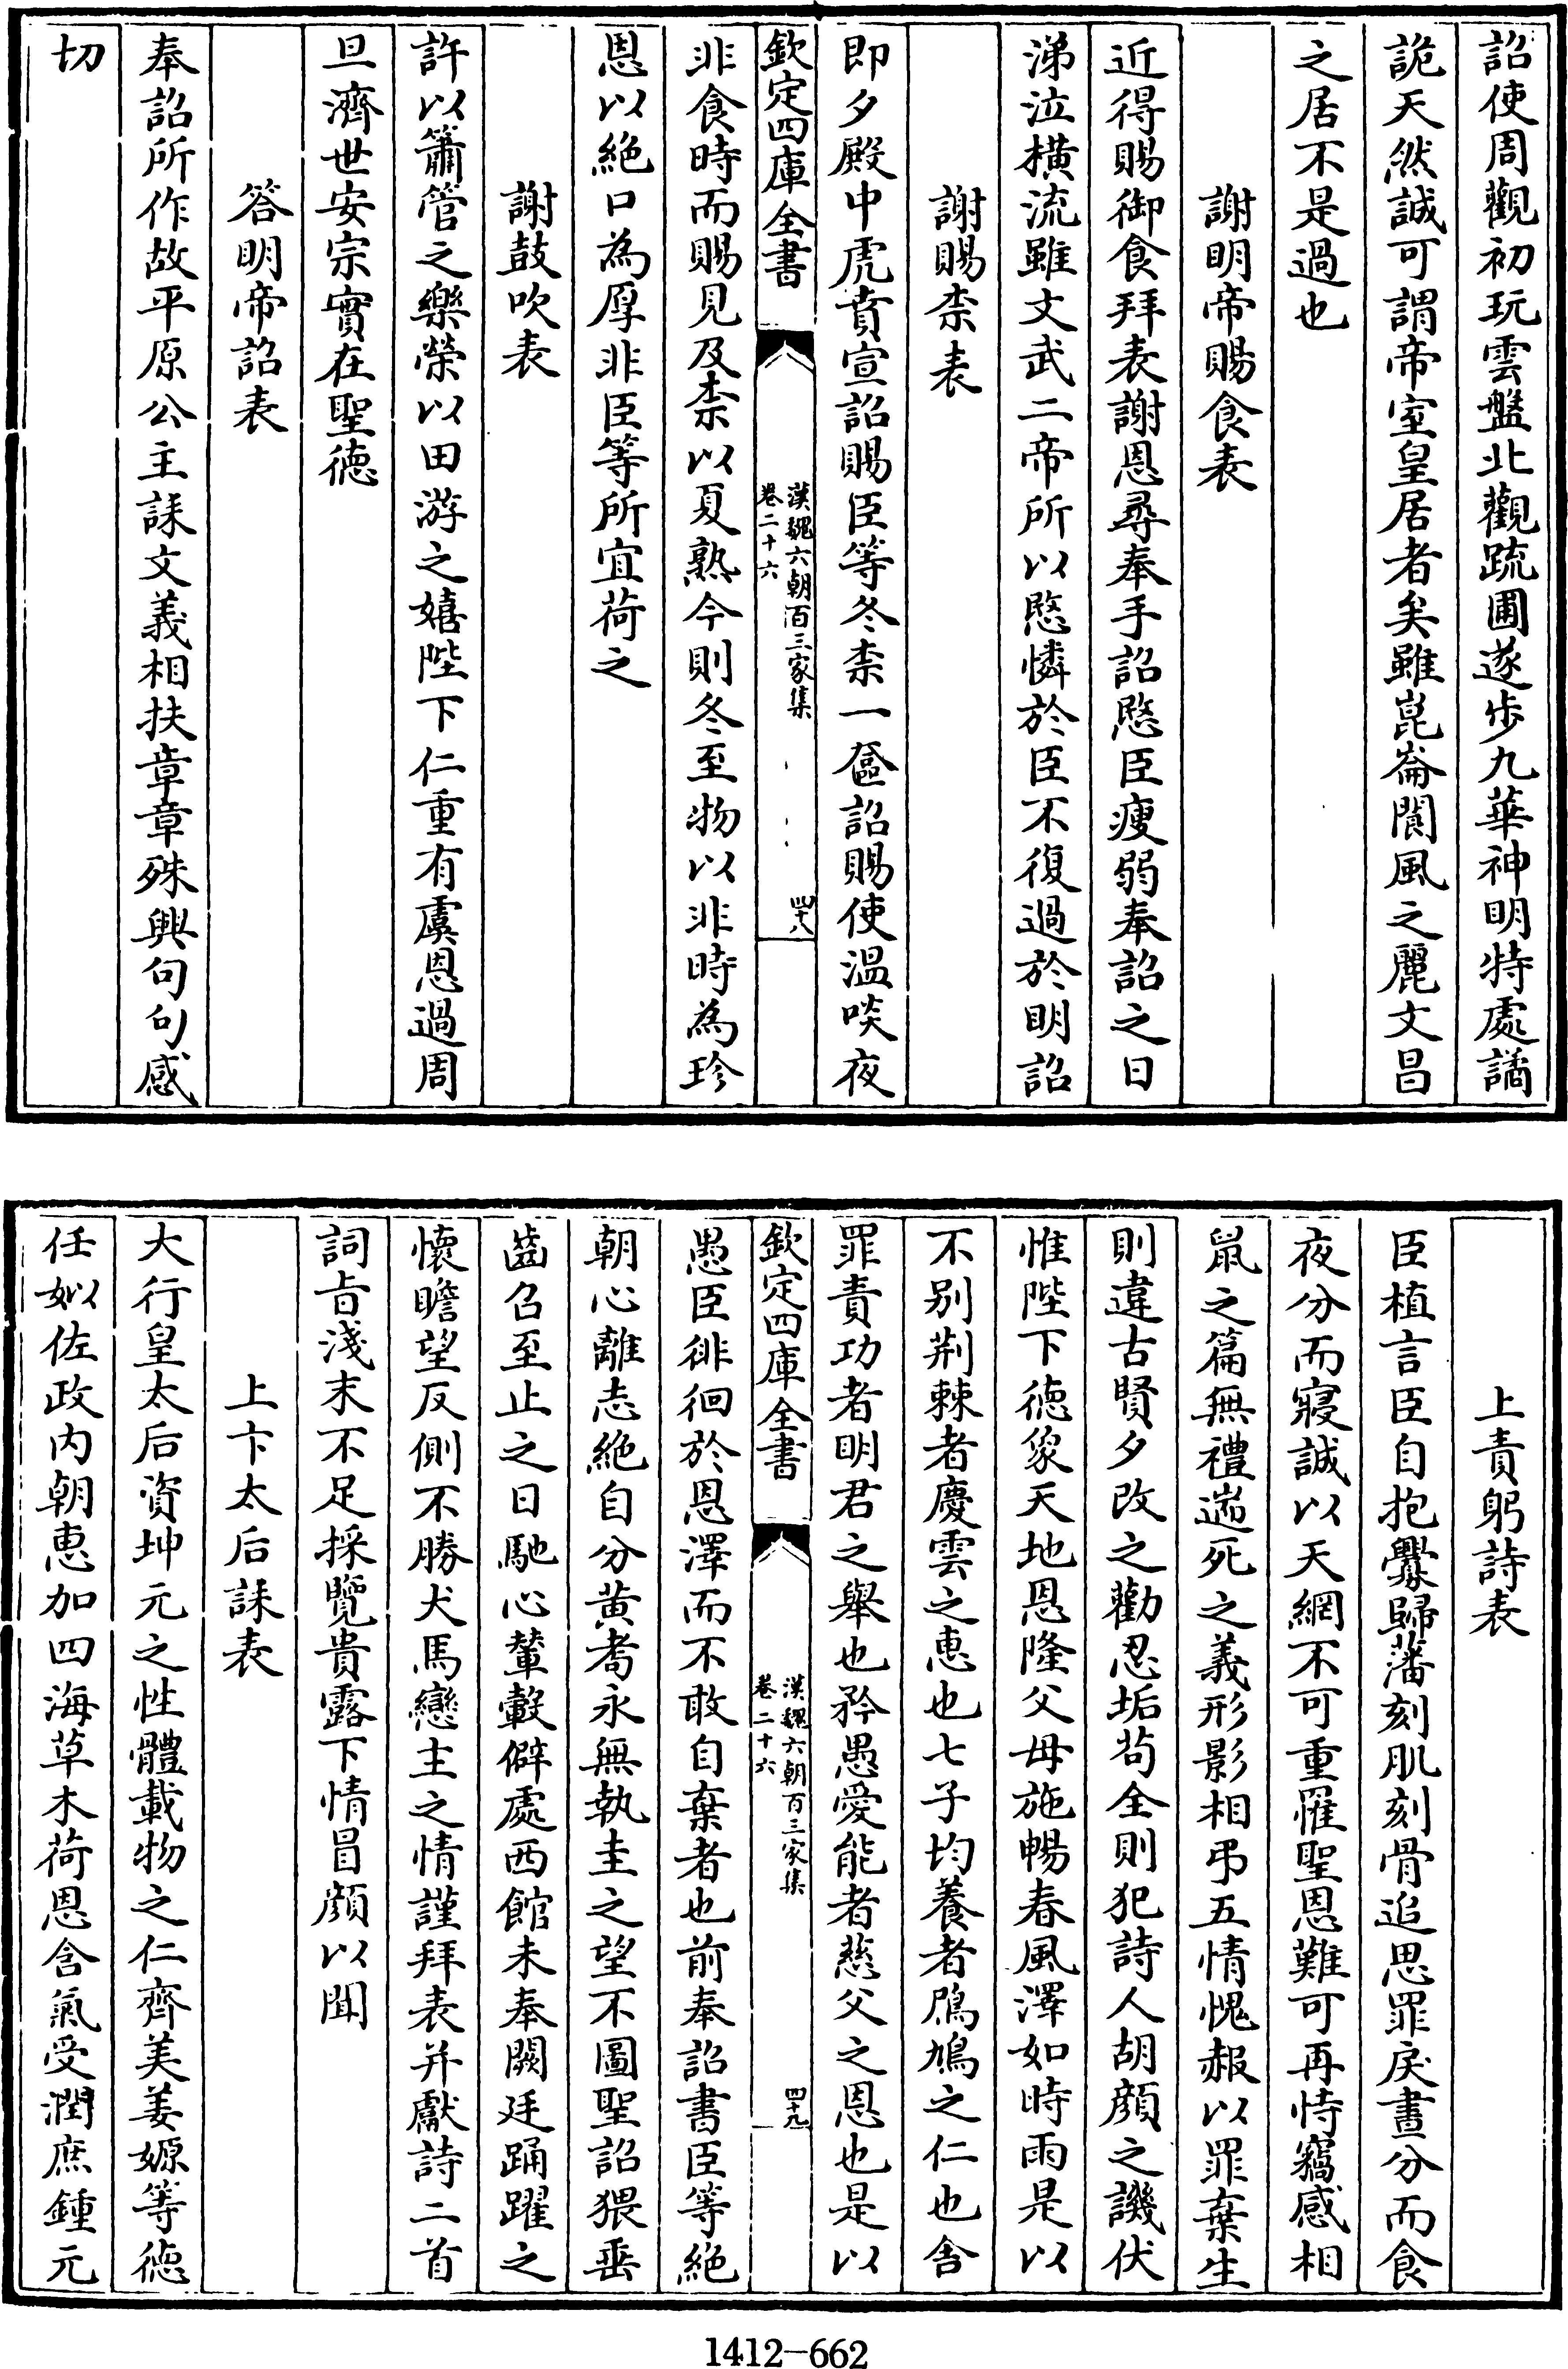 詔使周觀初玩雲盤北觀疏圃遂步九華神明特處譎
詭天然誠可謂帝室皇居者矣雖崑崙閬風之麗文昌
之居不是過也
謝明帝賜食表
近得賜御食拜表謝恩尋奉手詔愍臣瘦弱奉詔之日
涕泣横流雖文武二帝所以愍憐於臣不復過於明詔
謝賜柰表
即夕殿中虎賁宣詔賜臣等冬柰一奩詔賜使温啖夜
欽定四庫全書
漢魏六朝百三家集
卷二十六
四十八
非食時而賜見及柰以夏熟今則冬至物以非時為珍
恩以絶口為厚非臣等所宜荷之
謝鼓吹表
許以簫管之樂榮以田游之嬉陛下仁重有虞恩過周
旦濟世安宗實在聖徳
答明帝詔表
奉詔所作故平原公主誄文義相扶章章殊興句句感
切
上責躬詩表
臣植言臣自抱釁歸藩刻肌刻骨追思罪戾晝分而食
夜分而寢誠以天網不可重罹聖恩難可再恃竊感相
鼠之篇無禮遄死之義形影相弔五情愧赧以罪棄生
則違古賢夕改之勸忍垢茍全則犯詩人胡顔之譏伏
惟陛下徳象天地恩隆父母施暢春風澤如時雨是以
不别荆棘者慶雲之惠也七子均養者鳲鳩之仁也舍
罪責功者明君之舉也矜愚愛能者慈父之恩也是以
欽定四庫全書
漢魏六朝百三家集
卷二十六
四十九
愚臣徘徊於恩澤而不敢自棄者也前奉詔書臣等絶
朝心離志絶自分黄耇永無執圭之望不圖聖詔猥垂
齒召至止之日馳心輦轂僻處西館未奉闕廷踊躍之
懷瞻望反側不勝犬馬戀主之情謹拜表并獻詩二首
詞㫖淺末不足採覽貴露下情冒顔以聞
上卞太后誄表
大行皇太后資坤元之性體載物之仁齊美姜嫄等徳
任姒佐政内朝恵加四海草木荷恩含氣受潤庶鍾元
1412-662